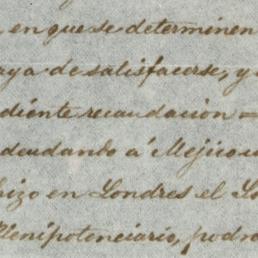 en que se determinen
aya de satisfacerse, y
diente recaudación =
adeudando á Méjico
hizo en Londres el
Plenipotenciario, podro